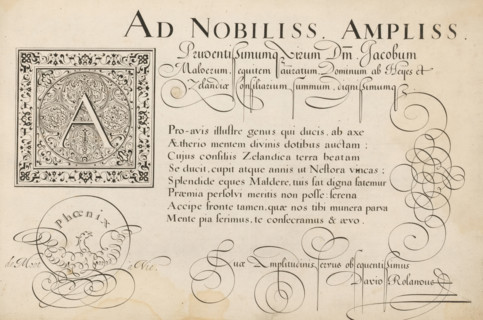 AD NOBILISS. AMPLISS.
Prudentissimumq Virum Dm̄ Jacobum
Malderum, equitem auratum Dominum ab Heyes et
Zelandiæ Consiliarium summum, dignissimumq
A
Pro-avis illustre genus qui ducis, ab axe
Ætherio mentem divinis dotibus auctam;
Cujus consiliis Zelandica terra beatam
Se ducit, cupit atque annis ut Nestora vincas;
Splendide eques Maldere, tuis sat digna fatemur
Præmia persolvi meritis non posse: serena
Accipe fronte tamen, quæ nos tibi munera parva
Mente pia ferimus, te consecramus & ævo.
Phœnix
de Mort Vie
Tuæ Amplitudinis servus obsequentissimus
David Rolandus